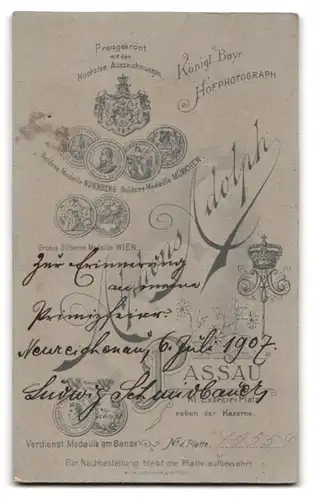 Preisgekrönt
mit den
Höchsten Auszeichnungen.
Königl. Bayr.
Hofphotograph
Goldene Medaille NÜRNBERG Goldene Medaille MÜNCHEN
Grosse Silberne Medaille WIEN.
Alphons Adolph
Zur Erinnerung
an meine
Primizfeier.
Neureichenau, 6. Juli 1907.
Ludwig Schmidbauer
PASSAU
Kl. Exercir-Platz
neben der Kaserne.
Verdienst Medaille am Bande
No d. Platte.
Für Nachbestellung bleibt die Platte aufbewahrt